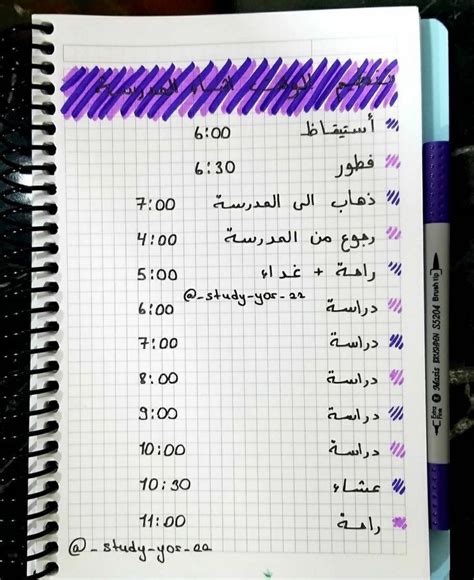 تنظيم الوقت اثناء المدرسة
أستيقاظ 6:00
فطور 6:30
ذهاب الى المدرسة 7:00
رجوع من المدرسة 4:00
راحة + غداء 5:00
@_study-yor_aa
دراسة 6:00
دراسة 7:00
دراسة 8:00
دراسة 9:00
دراسة 10:00
عشاء 10:30
راحة 11:00
@_study-yor_aa
Extra Fine Masis BRUSHPEN SS204 Brush tip